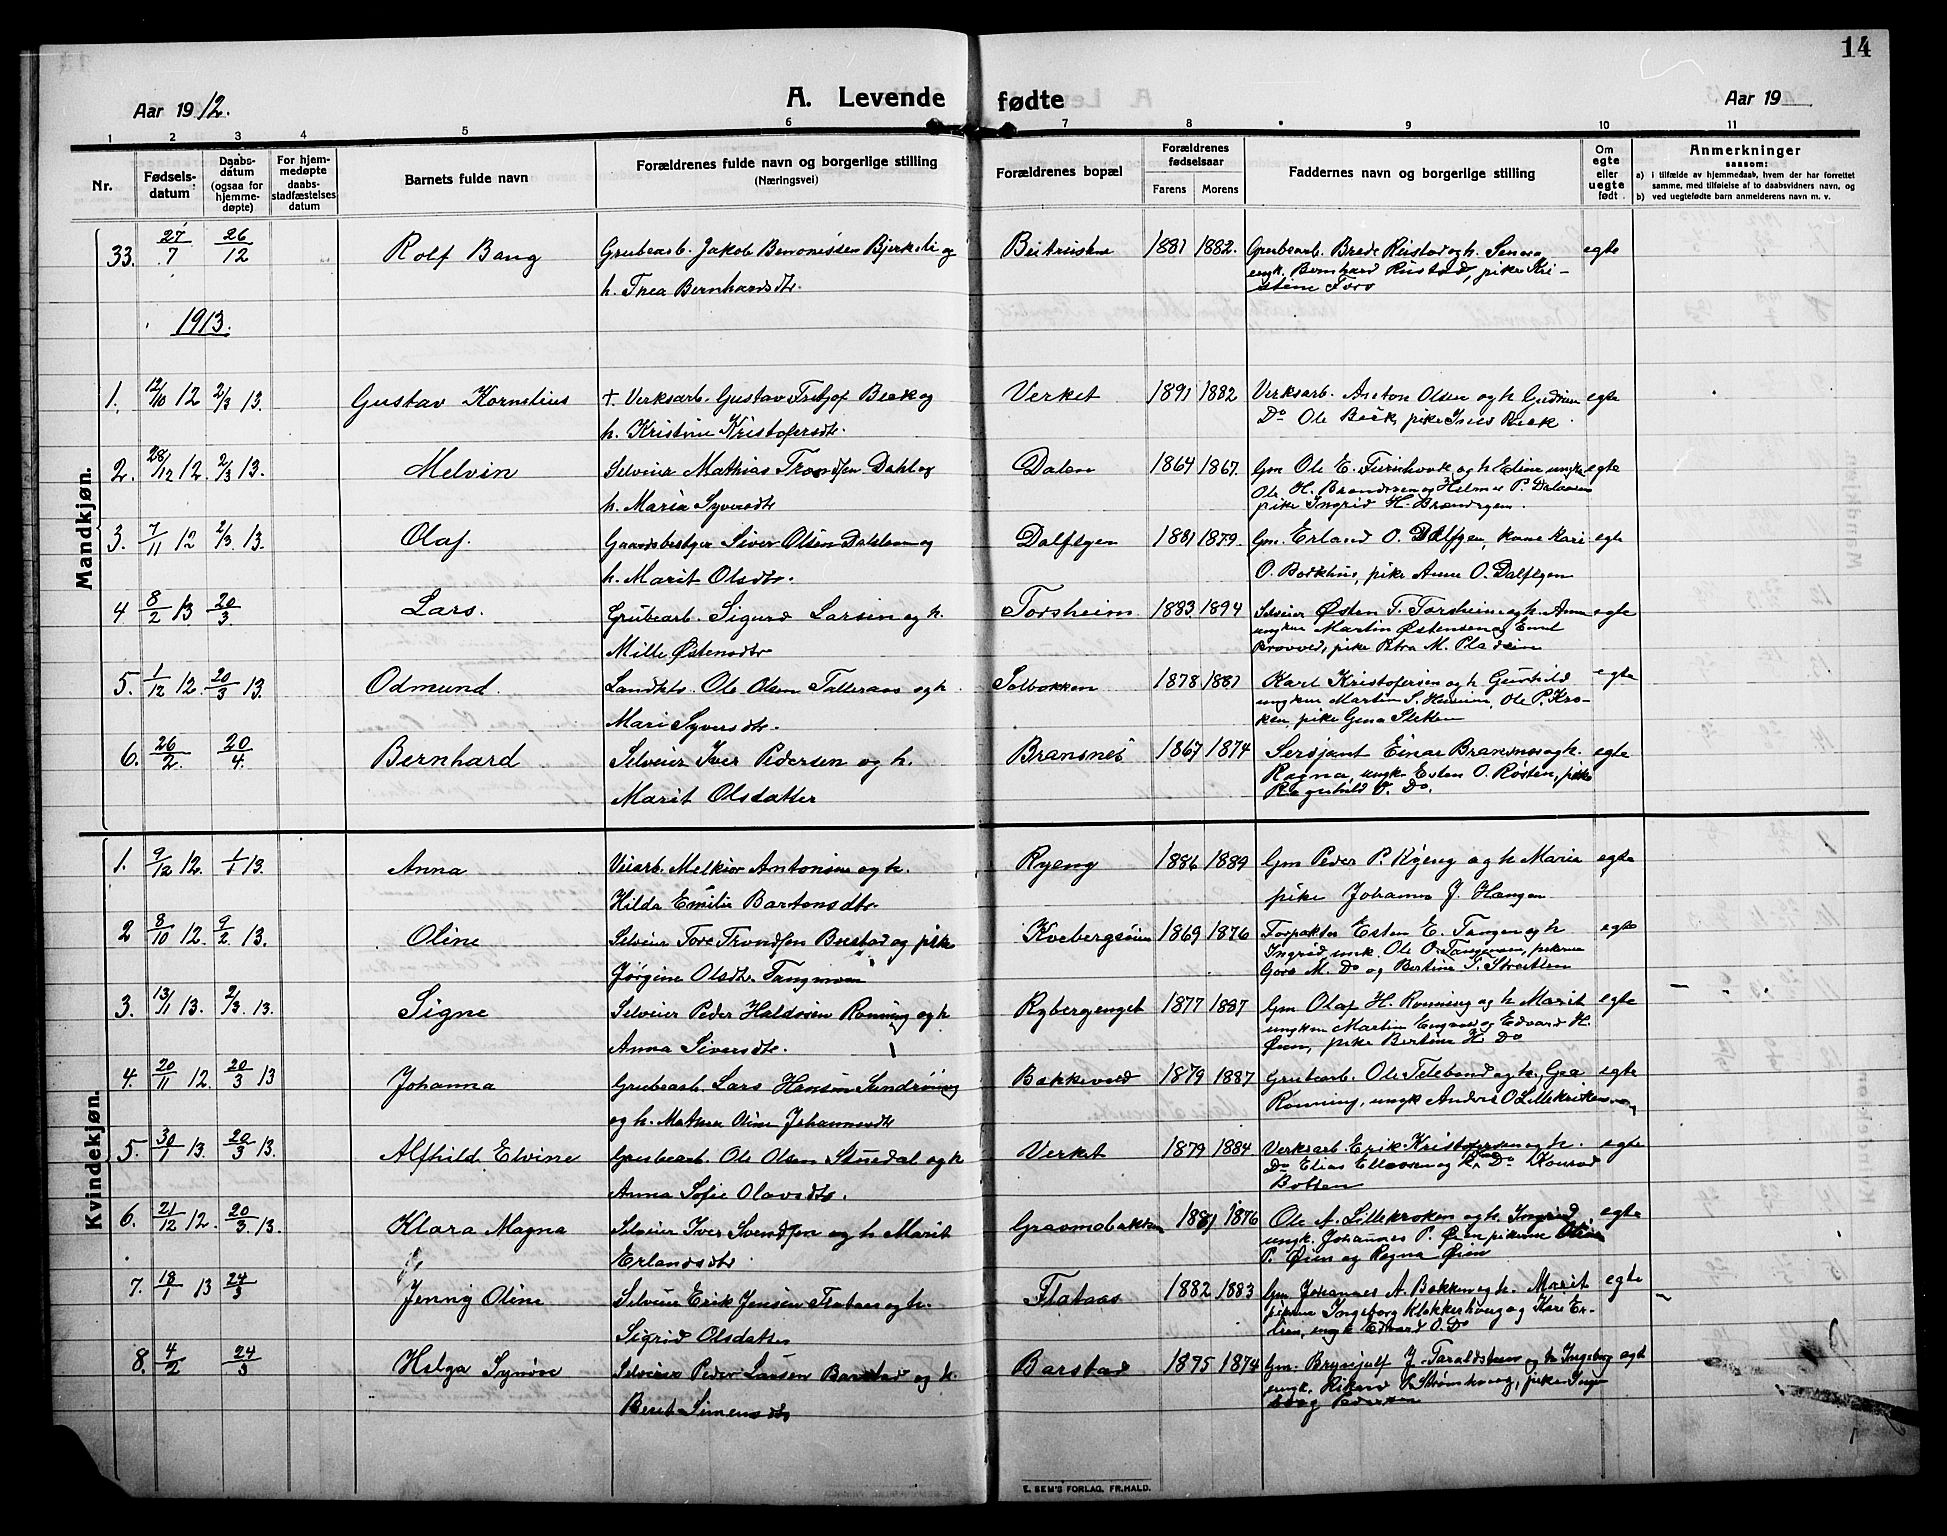 14
Aar 1912.
A. Levende fødte
Aar 19
1 2 3 4 5 6 7 8 9 10 11
Nr.
Fødsels-
datum
Daabs-
datum
(ogsaa for
hjemme-
døpte)
For hjem-
medøpte
daabs-
stadfæstelses
datum
Barnets fulde navn
Forældrenes fulde navn og borgerlige stilling
(Næringsvei)
Forældrenes bopæl
Forældrenes
fødselsaar
Farens Morens
Faddernes navn og borgerlige stilling
Om
egte
eller
uegte
født.
Anmerkninger
saasom:
a) i tilfælde av hjemmedaab, hvem der har forrettet
samme, med tilføielse af to daabsvidners navn, og
b) ved uegtefødte barn anmelderens navn m. v.
Mandkjøn.
33. 27/7 26/12 Rolf Bang Grubearb. Jakob Benonissen Bjerkeli og 1881 1882. Grubearb. Brede Rustad og h. egte
h. Thea Bernhardsdtr. ungk. Bernhard Rustad, pike Kri-
stine Fors
1913.
1. 12/10 12 2/3 13. Gustav Kornelius + Verksarb. Gustav Fritjof Beck og Verket 1891 1882 Verksarb. Anton Olsen og h. Gudrun egte
h. Kristine Kristofersdtr. Do Ole Beck, pike Beck
2. 28/12 12. 2/3 13. Melvin Selveier Mathias Trondsen Dahl og Dalen 1864 1867. Gm. Ole E. og h. Eline egte
h. Maria Syversdtr Ole H. Brendryen og Hilmer P. Dalaasen
pike Ingrid H. Brendryen.
3. 7/11 12 2/3 13. Olaf. Gaardsbestyrer Siver Olsen Dahlen og Dalflyen 1881 1879. Gm. Erland O. Dalflyen, kone Kari egte
h. Marit Olsdtr. O. Bakkhus, pike Anne O. Dalflyen
4 8/2 13 20/3 Lars. Grubearb. Sigurd Larsen og h. Torsheim 1883 1894 Selveier Østen T. Torsheim og h. Anne egte
Mille Østensdtr ungkm Martin Østensen og Emil
pike Petra M.
5. 1/12 12. 20/3 13. Odmund. Ole Olsen Talleraas og h. Solbakken 1878 1881 Karl Kristofersen og h. Gunhild egte
Mari Syversdtr. ungkm Martin S. Ole P. Kro-
ken, pike Gina Sletten
6. 26/2 20/4 Bernhard Selveier Iver Pedersen og h. Bransnes 1867 1874 Sersjant Einar Bransnes og h. egte
Marit Olsdatter Ragna, ungk. Esten O. Røsten, pike
Ragnhild O. Do.
Kvindekjøn.
1. 9/12 12. 1/1 13. Anna Veiarb. Melkior Antonsen og h. Ryeng 1886 1889 Gm Peder P. Ryeng og h Maria egte
Hilda Emilie Bartonsdtr. pike Johanna J. Haugen
2 8/10 12. 9/2 13. Oline Selveier Tore Trondsen Bustad og pike 1869 1876 Forpakter Esten E. Tangen og h egte
Jørgine Olsdtr. Tangmoen Ingrid, unk. Ole O. Tangmoen, pikerne
Goro M. Do og Bertine T. Streitlien
3. 13/11 13. 2/3 13. Signe Selveier Peder Haldosen Rønning og h Rybergenget 1877 1887 Gm Olaf H. Rønning og h Marit egte
Anna Siversdtr. ungkm Martin og Edvard H.
Øien, pike Bertine H. Do
4. 20/11 12. 20/3 13 Johanna Grubearb. Lars Hansen og h. Mathea Oline Johannesdtr Bakkevold 1879 1887 Grubearb. Ole og h. egte
Rønning, ungk Anders O. Lillekroken
5. 30/1 13. 20/3 13. Alfhild Elvine Grubearb. Ole Olsen Stuedal og h Verket 1879 1884 Verksarb. Erik Kristofersen og h. egte
Anna Sofie Olavsdtr. Do Elias Eliassen og Do Konrad
Botten
6. 21/12 12. 20/3. 13. Klara Magna Selveier Iver Svendsen og h Marit Graamobakken 1881 1876 Ole A. Lillekroken og h. Ingrid egte
Erlandsdtr ungk. Johannes P. Øien pikerne
P. Øien og Ragna Øien
7. 18/1 13 24/3 Jenny Oline Selveier Erik Jensen Flataas og h. Flataas 1882 1883 Gm Johannes A. Bakken og h. Marit egte
Sigrid Olsdatter pikerne Ingeborg Klokkerhaug og Kari Er-
lien, ungk Edvard O. Do
8. 4/2 24/3 Helga Synøve Selveier Peder Larsen Barstad og h. Barstad 1875 1874 Gm. Brynjulf J. og h Ingeborg egte
Berit Simensdtr ungk. Rikard Strømhaug, pike Inge-
borg Pedersen
E. SEM'S FORLAG, FR.HALD.